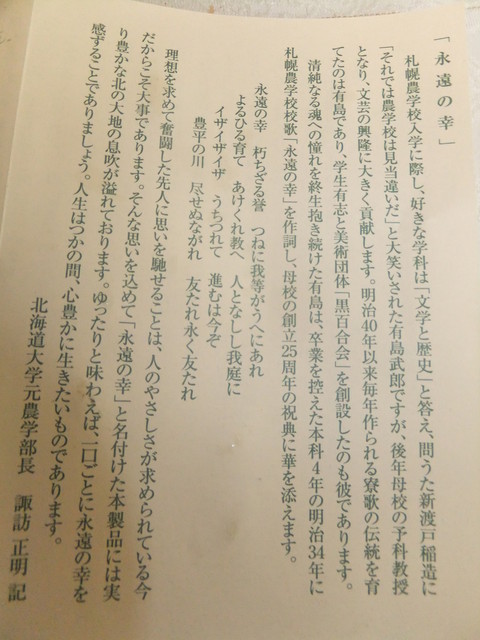 「永遠の幸」
札幌農学校入学に際し、好きな学科は「文学と歴史」と答え、問うた新渡戸稲造に
「それでは農学校は見当違いだ」と大笑いされた有島武郎ですが、後年母校の予科教授
となり、文芸の興隆に大きく貢献します。明治40年以来毎年作られる寮歌の伝統を育
てたのは有島であり、学生有志と美術団体「黒百合会」を創設したのも彼であります。
清純なる魂への憧れを終生抱き続けた有島は、卒業を控えた本科4年の明治34年に
札幌農学校校歌「永遠の幸」を作詞し、母校の創立25周年の祝典に華を添えます。
永遠の幸　朽ちざる誉　つねに我等がうへにあれ
よるひる育て　あけくれ教へ　人となしし我庭に
イザイザイザ　うちつれて　進むは今ぞ
豊平の川　尽せぬながれ　友たれ永く友たれ
理想を求めて奮闘した先人に思いを馳せることは、人のやさしさが求められている今
だからこそ大事であります。そんな思いを込めて「永遠の幸」と名付けた本製品には実
り豊かな北の大地の息吹が溢れております。ゆったりと味わえば、一口ごとに永遠の幸を
感ずることでありましょう。人生はつかの間、心豊かに生きたいものであります。
北海道大学元農学部長　諏訪 正明 記